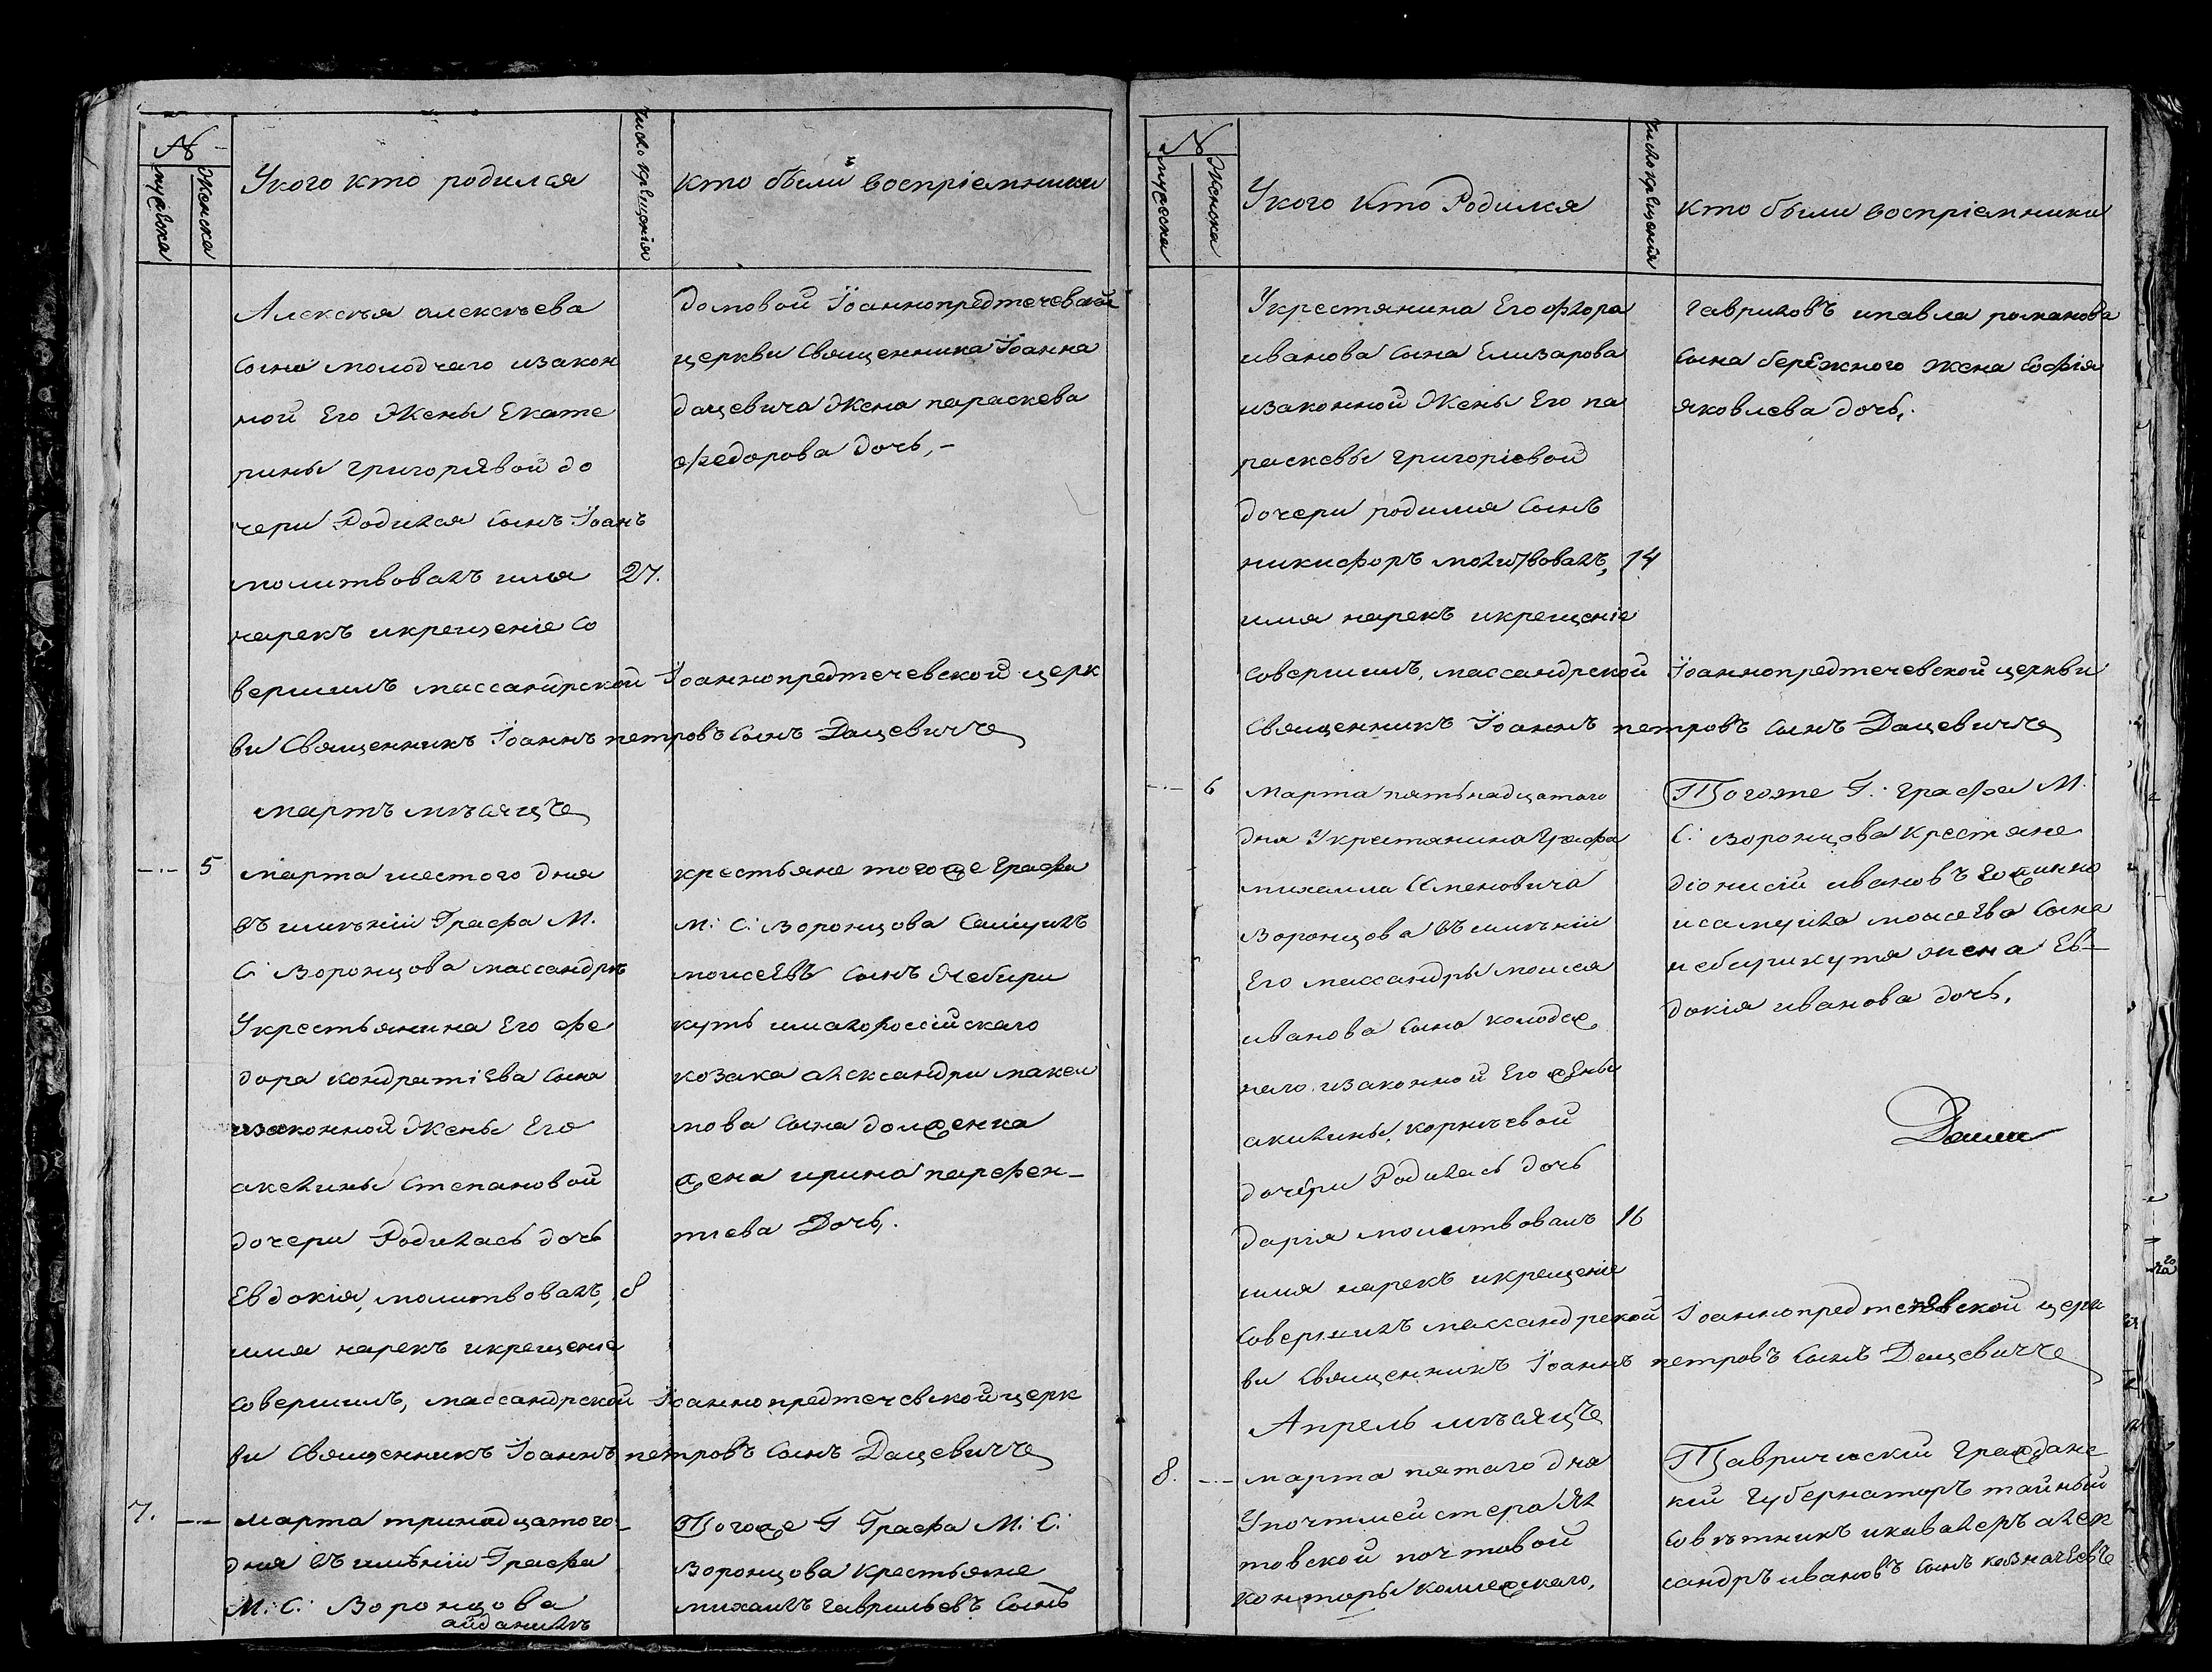 №
мужеска
Женска
У кого кто родился
Число крещенія
кто были воспріемники
Алексѣя алексѣева
Сына молодчаго изакон
ной Его Жены Екате
рины григорiевой до
чери Родился Сынъ Іоанъ
молитвовалъ имя 27.
нарекъ икрещеніе Со
вершилъ массандрской Іоаннопредтечевской церк
ви Священникъ Іоаннъ петровъ Сынъ Дацевичъ
домовой Іоаннопредтечевской
церкви Священника Іоанна
дацевича Жена параскева
федорова дочь,-
мартъ мѣсяцъ
5 марта шестого дня
въ имѣніи Графа М.
С: Воронцова массандрѣ
Укрестьянина Его фе
дора кондратіева Сына
изаконной Жены Его
акелины Степановой
дочери Родилась дочь
Евдокія, молитвовалъ, 8
имя нарекъ икрещеніе
совершилъ, массандрской Іоаннопредтечевской церк
ви Священникъ Іоаннъ петровъ Сынъ Дацевичъ
крестьяне тогоже Графа
М: С: Воронцова Самуилъ
моисеевъ Сынъ Небири
куть ималороссійскаго
козака александра макси
мова Сына долженка
жена ирина парфен-
тiева Дочь.
7. марта тринадцатого
дня въ имѣніи Графа
М: С: Воронцова
айданилѣ
Тогоже Г Графа М: С:
Воронцова Крестьяне
михаилъ гаврильевъ Сынъ
№
мужеска
Женска
У кого Кто Родился
Число крещенія
Кто были воспріемники
Укрестянина Его флора
иванова Сына Елизарова
изаконной Жены Его па
раскевы григоріевой
дочери родился Сынъ
никифоръ молитвовалъ, 14
имя нарекъ икрещеніе
совершилъ, массандрской Іоаннопредтечевской церкви
Священникъ Іоаннъ петровъ Сынъ Дацевичъ
гавриловъ ипавла романова
Сына бережного жена Софія
яковлева дочь,.
6 марта пятьнадцатого
дня Укрестянина Графа
михаила Семеновича
Воронцова въ имѣніи
Его массандры моисея
иванова Сына колодяж
наго изаконной Его жены
акилины, корнѣевой
дочери Родилась дочь
дарія молитвовалъ 16
имя нарекъ икрещеніе
совершилъ массандрской Іоаннопредтечевской церк
ви Священникъ Іоаннъ петровъ Сынъ Дацевичъ
Тогоже Г. графа М.
С: Воронцова Крестяне
діонисій ивановъ
исамуила моисеева Сына
небирикутя жена Ев-
докія иванова дочь,
Апрель мѣсяцъ
8. марта пятаго дня
Упочтмейстера Ял
товской почтовой
Конторы Коллежскаго,
Таврическій граждане
кій губернаторъ тайный
Совѣтникъ икавалеръ алек
сандръ ивановъ Сынъ казначеевъ